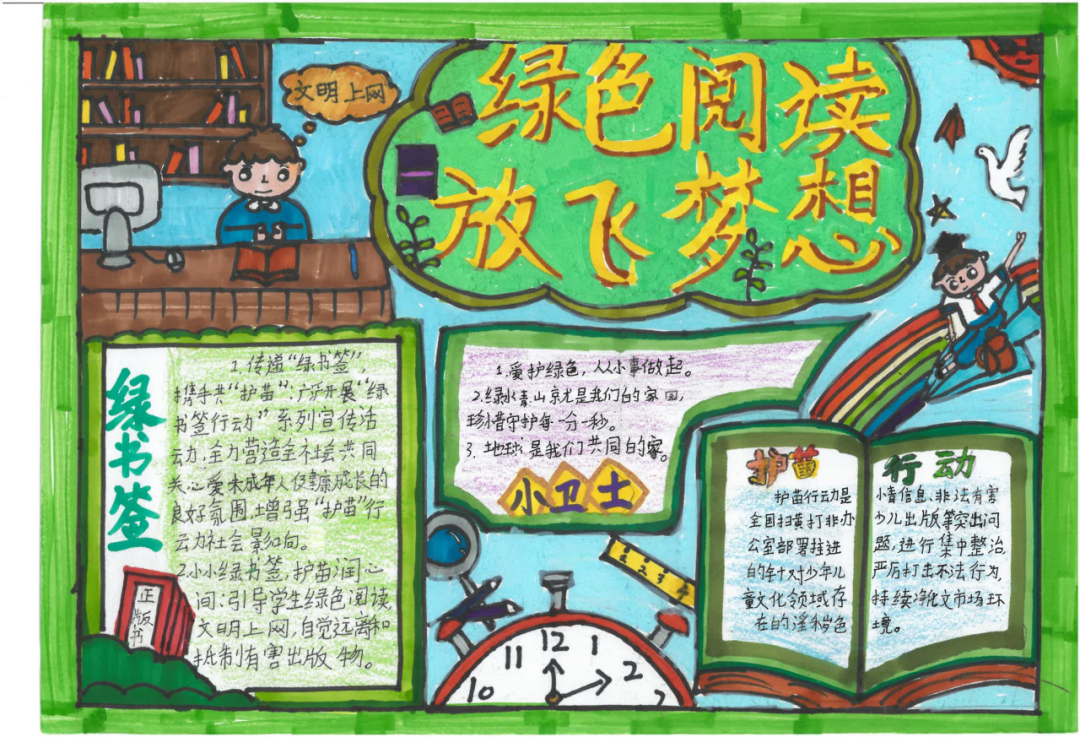 文明上网
绿色阅读
放飞梦想
绿书签
1.传递“绿书签”,
携手共“护苗”:广泛开展“绿
书签行动”系列宣传活
动,全力营造全社会共同
关心爱未成年人健康成长的
良好氛围,增强“护苗”行
动社会影响。
2.小小绿书签,护苗润心
间:引导学生绿色阅读
文明上网,自觉远离和
抵制有害出版物。
正版书
1.爱护绿色,从小事做起。
2.绿水青山就是我们的家园,
珍惜守护每一分一秒。
3.地球是我们共同的家。
小卫士
护苗
行动
护苗行动是
全国扫黄打非办
公室部署挂进
的针对少年儿
童文化领域存
在的淫秽色
情信息、非法有害
少儿出版等突出问
题,进行集中整治,
严厉打击不法行为,
持续净化文市场环
境。
1 2 3 4
10 11 12 1 2